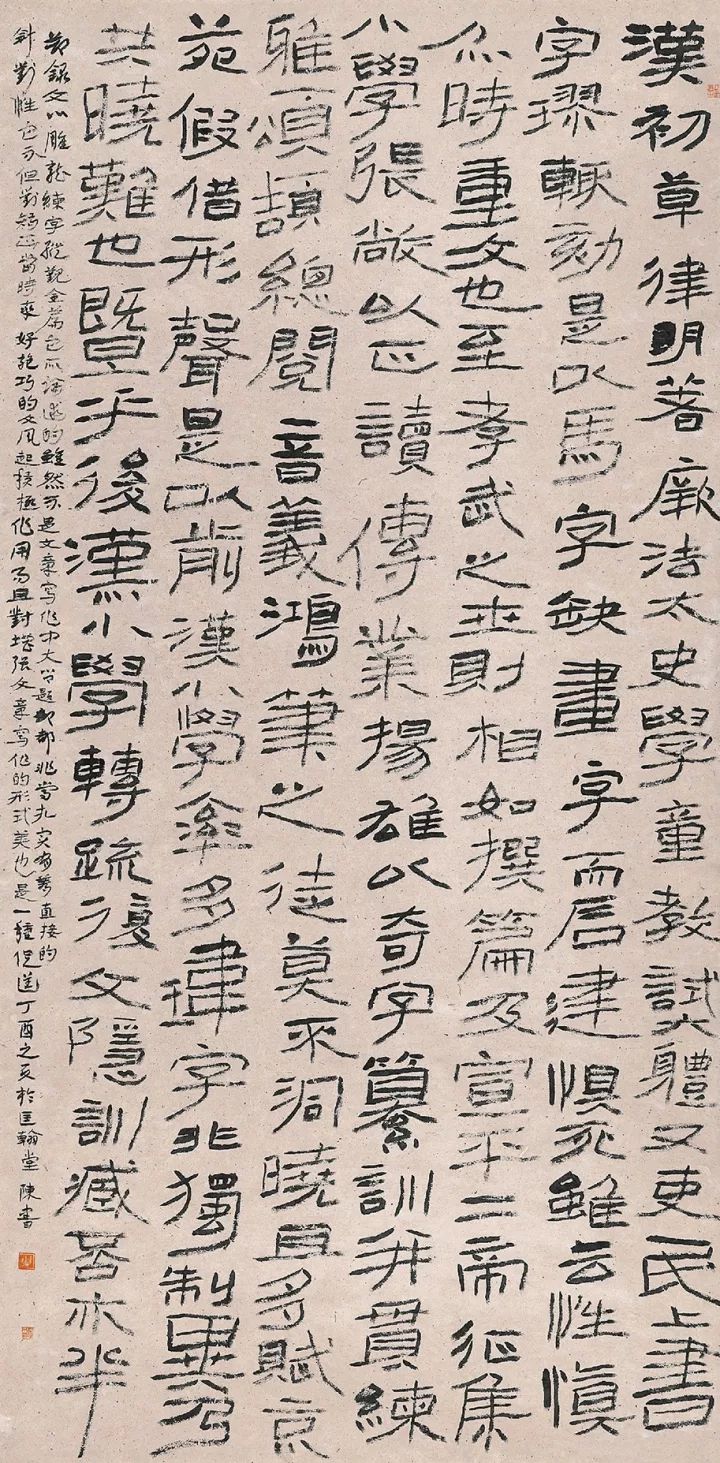 漢初草律明著厥法太史學童教試體又吏民上書
字璆輒劾是以馬字缺畫字而石建懼死雖云性慎
亦時重文也至孝武之世則相如撰篇及宣平二帝征集
小學張敞以正讀傳業揚雄以奇字纂訓并貫練
雅頌頡總閱音義鴻筆之徒莫不洞曉且多賦京
苑假借形聲是以前漢小學率多瑋字非獨制異乃
共曉難也暨乎後漢小學轉疏復文隱訓臧否亦半
節錄文心雕龍練字縱觀全篇它所論述的雖然不是文章寫作中大問題卻都非常扎實有著直接的
針對性它不但對矯正當時愛好詭巧的文風起積極作用而且對增强文章寫作的形式美也是一種促進丁酉之夏於匡翰堂陳書